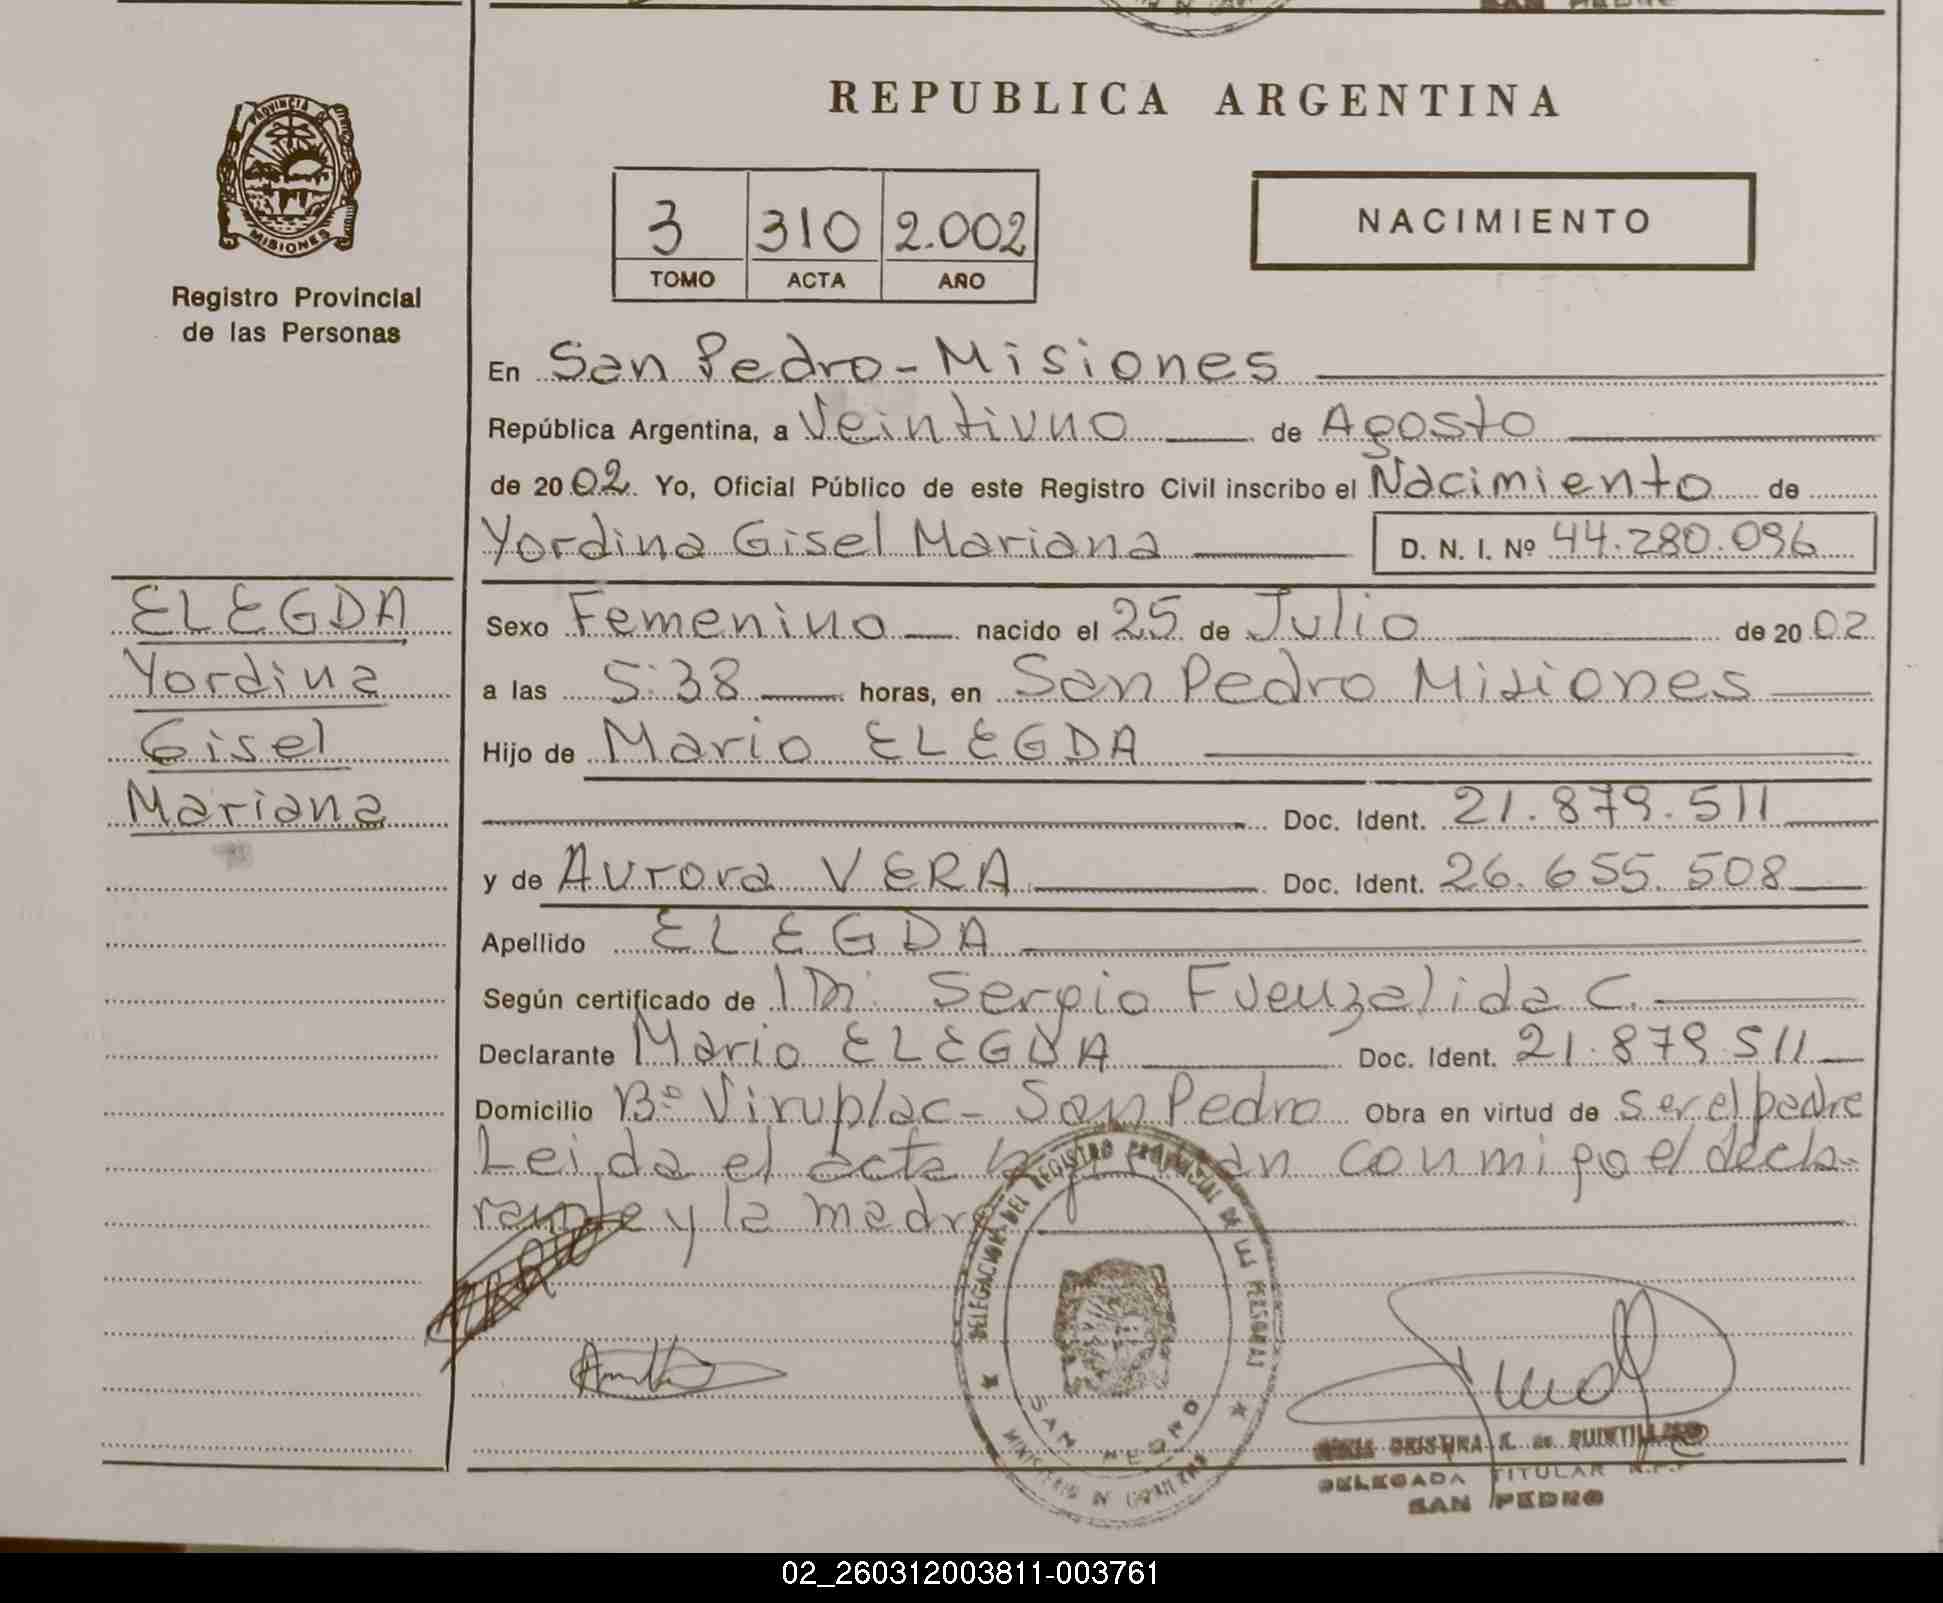 REPUBLICA ARGENTINA
PROVINCIA DE
MISIONES
Registro Provincial
de las Personas
3 310 2.002
TOMO ACTA AÑO
NACIMIENTO
En San Pedro - Misiones
República Argentina, a Veintiuno de Agosto
de 2002. Yo, Oficial Público de este Registro Civil inscribo el Nacimiento de
Yordina Gisel Mariana D. N. I. Nº 44.280.096
ELEGDA
Yordina
Gisel
Mariana
Sexo Femenino nacido el 25 de Julio de 2002
a las 5:38 horas, en San Pedro Misiones
Hijo de Mario ELEGDA
Doc. Ident. 21.879.511
y de Aurora VERA Doc. Ident. 26.655.508
Apellido ELEGDA
Según certificado de Sergio Fuenzalida C.
Declarante Mario ELEGDA Doc. Ident. 21.879.511
Domicilio Bº Viruplac - San Pedro Obra en virtud de ser el padre
Leida el acta conmigo el decla-
rante y la madre
DELEGACION DEL REGISTRO PROVINCIAL DE LAS PERSONAS
SAN PEDRO
MINISTERIO DE GOBIERNO
CRISTINA de QUINTILLANO
DELEGADA TITULAR R.P.P
SAN PEDRO
02_260312003811-003761